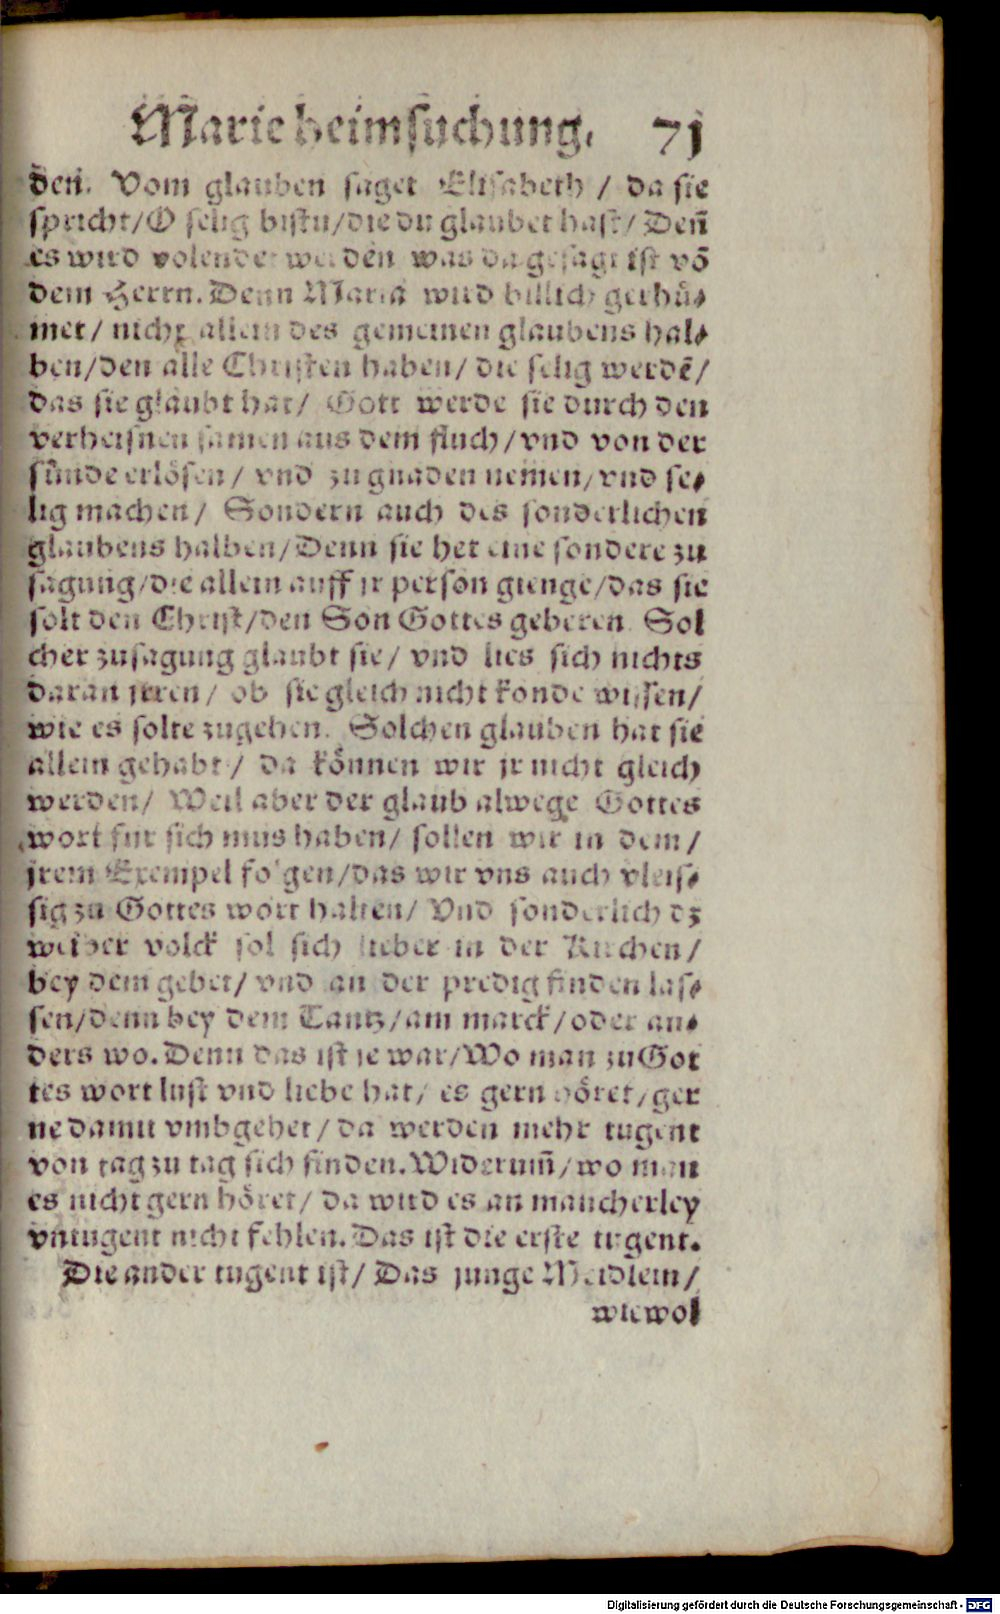 Marie heimsuchung. 71
den. Vom glauben saget Elisabeth / da sie
spricht/O selig bistu/die du glaubet hast/ Deñ
es wird volendet werden was da gesagt ist võ
dem Herrn. Denn Maria wird billich gerhü⸗
met/ nicht allein des gemeinen glaubens hal⸗
ben/den alle Christen haben/ die selig werdẽ/
das sie glaubt hat/ Gott werde sie durch den
verheisnen samen aus dem fluch/vnd von der
sünde erlösen/ vnd zu gnaden nemen/vnd se⸗
lig machen/ Sondern auch des sonderlichen
glaubens halben/Denn sie het eine sondere zu
sagung/die allein auff jr person gienge/das sie
solt den Christ/den Son Gottes geberen. Sol
cher zusagung glaubt sie/ vnd lies sich nichts
daran jrren/ ob sie gleich nicht konde wissen/
wie es solte zugehen. Solchen glauben hat sie
allein gehabt/ da können wir jr nicht gleich
werden/ Weil aber der glaub alwege Gottes
wort für sich mus haben/ sollen wir in dem/
jrem Exempel folgen/das wir vns auch vleis⸗
sig zu Gottes wort halten/ Vnd sonderlich dz
weiber volck sol sich lieber in der Kirchen/
bey dem gebet/ vnd an der predig finden las⸗
sen/denn bey dem Tantz/am marck/oder an⸗
ders wo. Denn das ist je war/Wo man zu Got
tes wort lust vnd liebe hat/ es gern höret/ger
ne damit vmbgehet/ da werden mehr tugent
von tag zu tag sich finden. Widerum̃/wo man
es nicht gern höret/ da wird es an mancherley
vntugent nicht fehlen. Das ist die erste tugent.
Die ander tugent ist/ Das junge Meidlein/
wiewol
Digitalisierung gefördert durch die Deutsche Forschungsgemeinschaft - DFG